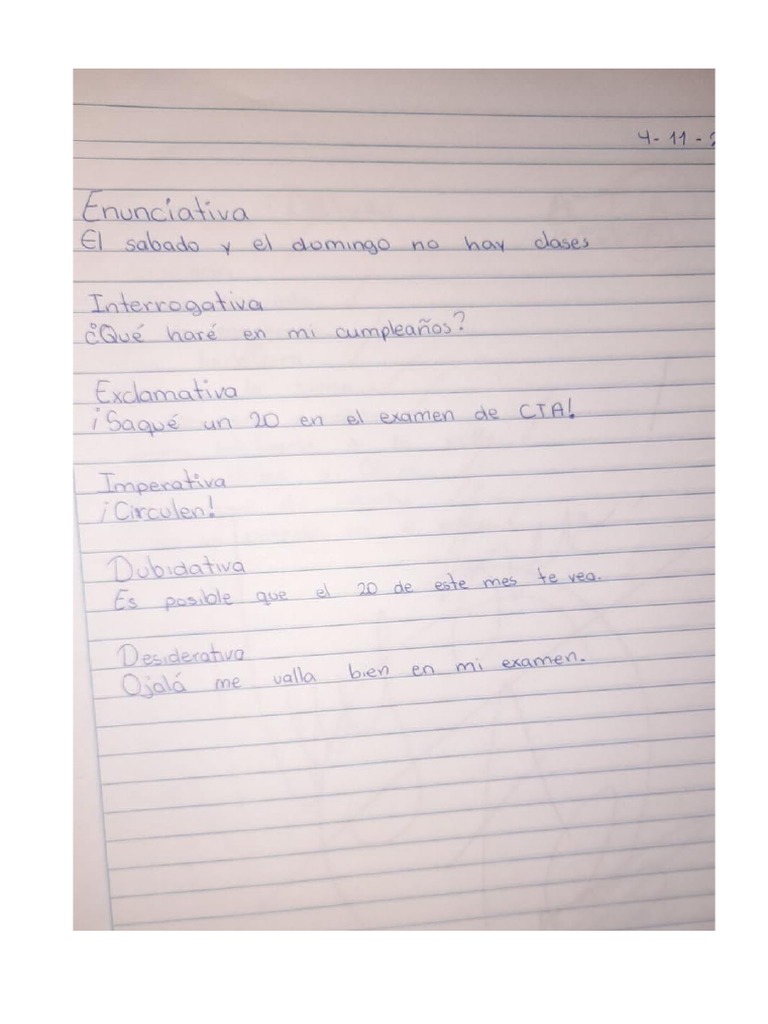 4-11-2
Enunciativa
El sabado y el domingo no hay clases
Interrogativa
¿Qué haré en mi cumpleaños?
Exclamativa
¡Saqué un 20 en el examen de CTA!
Imperativa
¡Circulen!
Dubidativa
Es posible que el 20 de este mes te vea.
Desiderativa
Ojalá me valla bien en mi examen.